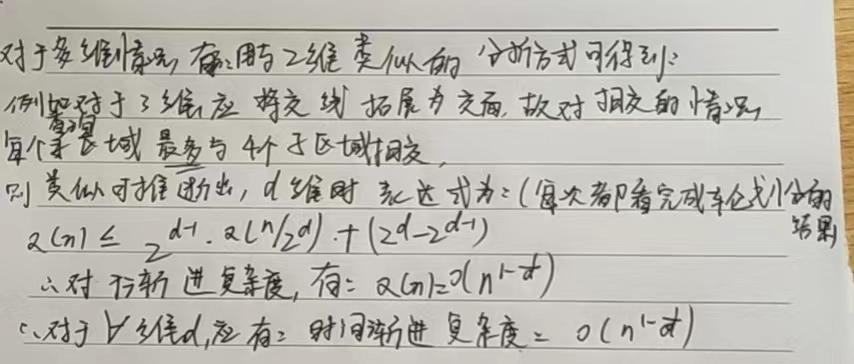 对于多维情况,有:用与2维类似的分析方式可得到:
例如对于3维,应将交线拓展为交面,故对相交的情况,
每个查询区域最多与4个子区域相交,
则类似可推断出,d维时表达式为:(每次都看完成车仑划分的结果
Q(n) ≤ 2^{d-1}·Q(n/2^d)+(2^d-2^{d-1})
∴对于渐进复杂度,有: Q(n)=O(n^{1-1/d})
∴对于∀维d,应有:时间渐进复杂度= O(n^{1-1/d})